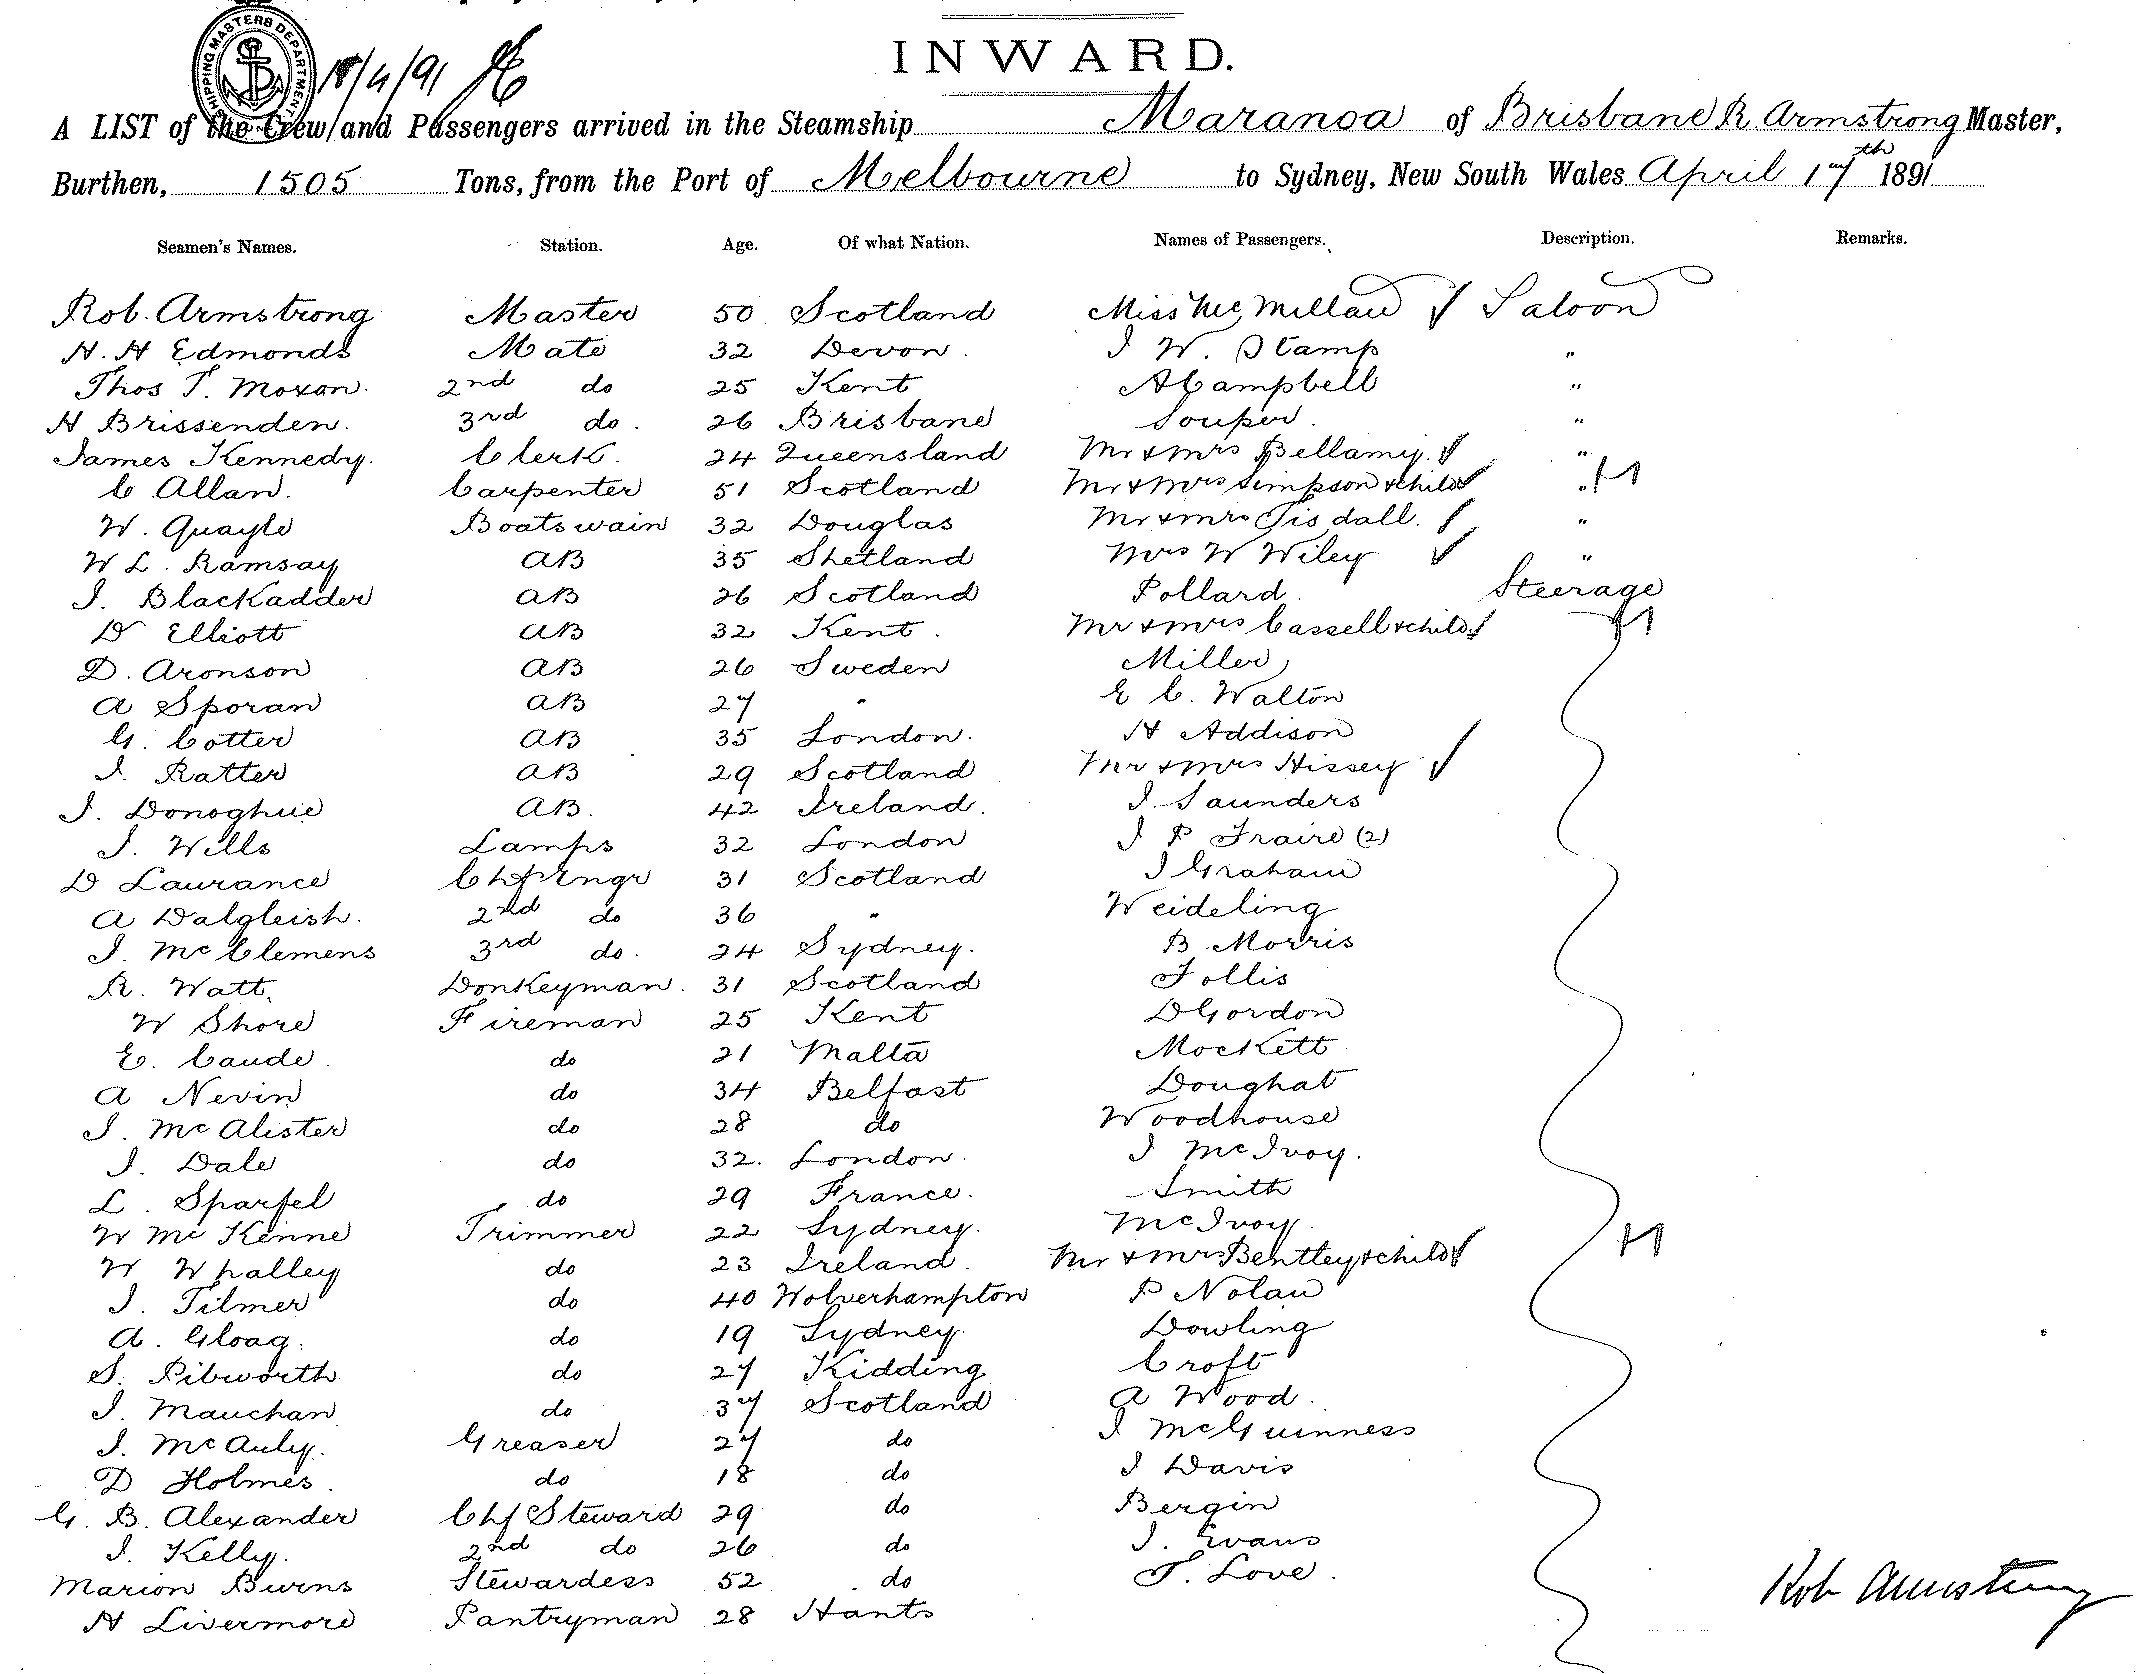 SHIPPING MASTERS DEPARTMENT
18/4/91
INWARD.
A LIST of the Crew and Passengers arrived in the Steamship Maranoa of Brisbane R. Armstrong Master,
Burthen, 1505 Tons, from the Port of Melbourne to Sydney, New South Wales April 17th 1891
Seamen's Names. Station. Age. Of what Nation. Names of Passengers. Description. Remarks.
Rob. Armstrong Master 50 Scotland Miss McMillan Saloon
H. H Edmonds Mate 32 Devon. J W. Stamp "
Thos T. Moxon. 2nd do 25 Kent A Campbell "
H Brissenden. 3rd do. 26 Brisbane Souper. "
James Kennedy. Clerk. 24 Queensland Mr & Mrs Bellamy. "
C Allan. Carpenter 51 Scotland Mr & Mrs Simpson & child "
W. Quayle Boatswain 32 Douglas Mr & Mrs Tisdall. "
W L. Ramsay AB 35 Shetland Mrs W Wiley "
J. Blackadder AB 26 Scotland Pollard. Steerage
D Elliott AB 32 Kent. Mr & Mrs Cassell & child
D. Aronson AB 26 Sweden Miller
A Sporan AB 27 " E C. Walton
G. Cotter AB 35 London. H Addison
J. Ratter AB 29 Scotland Mr & Mrs Hissey
J. Donoghue AB. 42 Ireland. J. Saunders
J. Wills Lamps 32 London J P Fraire (2)
D Laurance Chf Engr 31 Scotland J Graham
A Dalgleish. 2nd do 36 " Weideling
J. McClemens 3rd do. 24 Sydney. B. Morris
R. Watt. Donkeyman. 31 Scotland Follis
W Shore Fireman 25 Kent D Gordon
E. Caude. do 21 Malta Mockett
A Nevin do 34 Belfast Doughat
J. McAlister do 28 do Woodhouse
J. Dale do 32. London. J McIvoy.
L. Sparfel do 29 France. Smith
W McKenne Trimmer 22 Sydney. McIvoy.
W Whalley do 23 Ireland. Mr & Mrs Bentley & child
J. Tilmer do 40 Wolverhampton P Nolan
A. Gloag. do 19 Sydney. Dowling
S. Pibworth do 27 Kidding Croft
J. Mauchan do 37 Scotland A Wood.
J. McAuly. Greaser 27 do J McGuinness
D Holmes. do 18 do J Davis
G. B. Alexander Chf Steward 29 do Bergin
J. Kelly. 2nd do 26 do J. Evans
Marion Burns Stewardess 52 do T. Love.
H Livermore Pantryman 28 Hants
Rob Armstrong